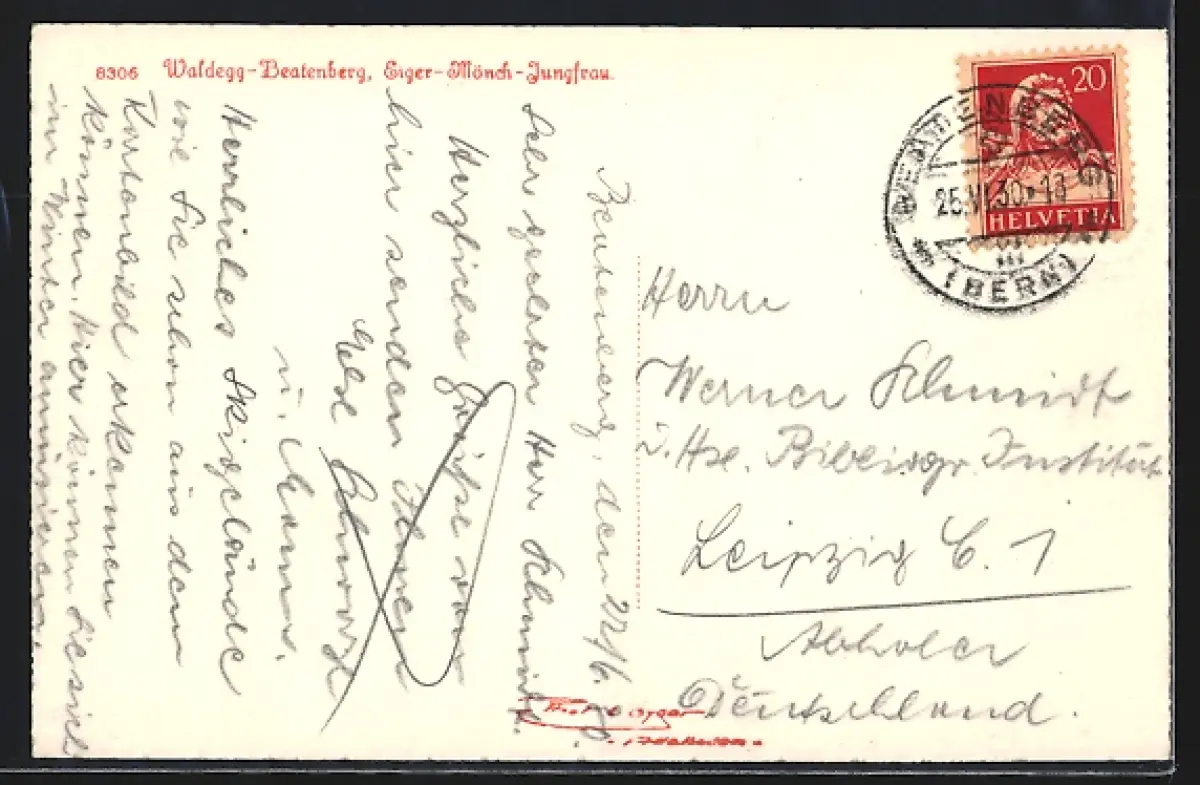 8306 Waldegg-Beatenberg, Eiger-Mönch-Jungfrau.
20
HELVETIA
BEATENBERG
25.VI.30
(BERN)
Beatenberg, den 22/6. 30.
Sehr geehrter Herr Schmidt.
Herzliche Grüsse von
hier senden Ihnen
u. Mann.
Herrliches Skigelände
wie Sie schon aus dem
Kartonbild erkennen
können. Hier können Sie sich
im Winter amüsieren.
Herrn
Werner Schmidt
Institut
Leipzig C. 1
Abholer
Deutschland.